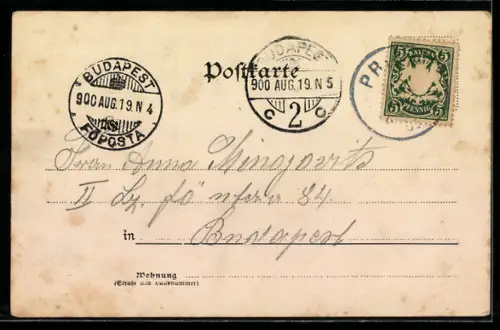 Postkarte
BUDAPEST
900 AUG.19.N 4
FŐPOSTA
BUDAPEST
900 AUG.19.N 5
C 2 C
PR
5 BAYERN 5
5 PFENNIG 5
Frau Anna
II Ker. fő utcza 84.
in Budapest
Wohnung
(Straße und Hausnummer)